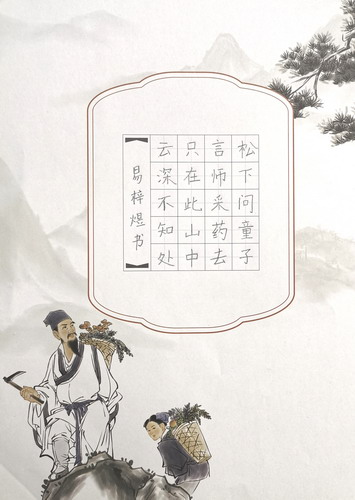 松下问童子
言师采药去
只在此山中
云深不知处
易梓煜书